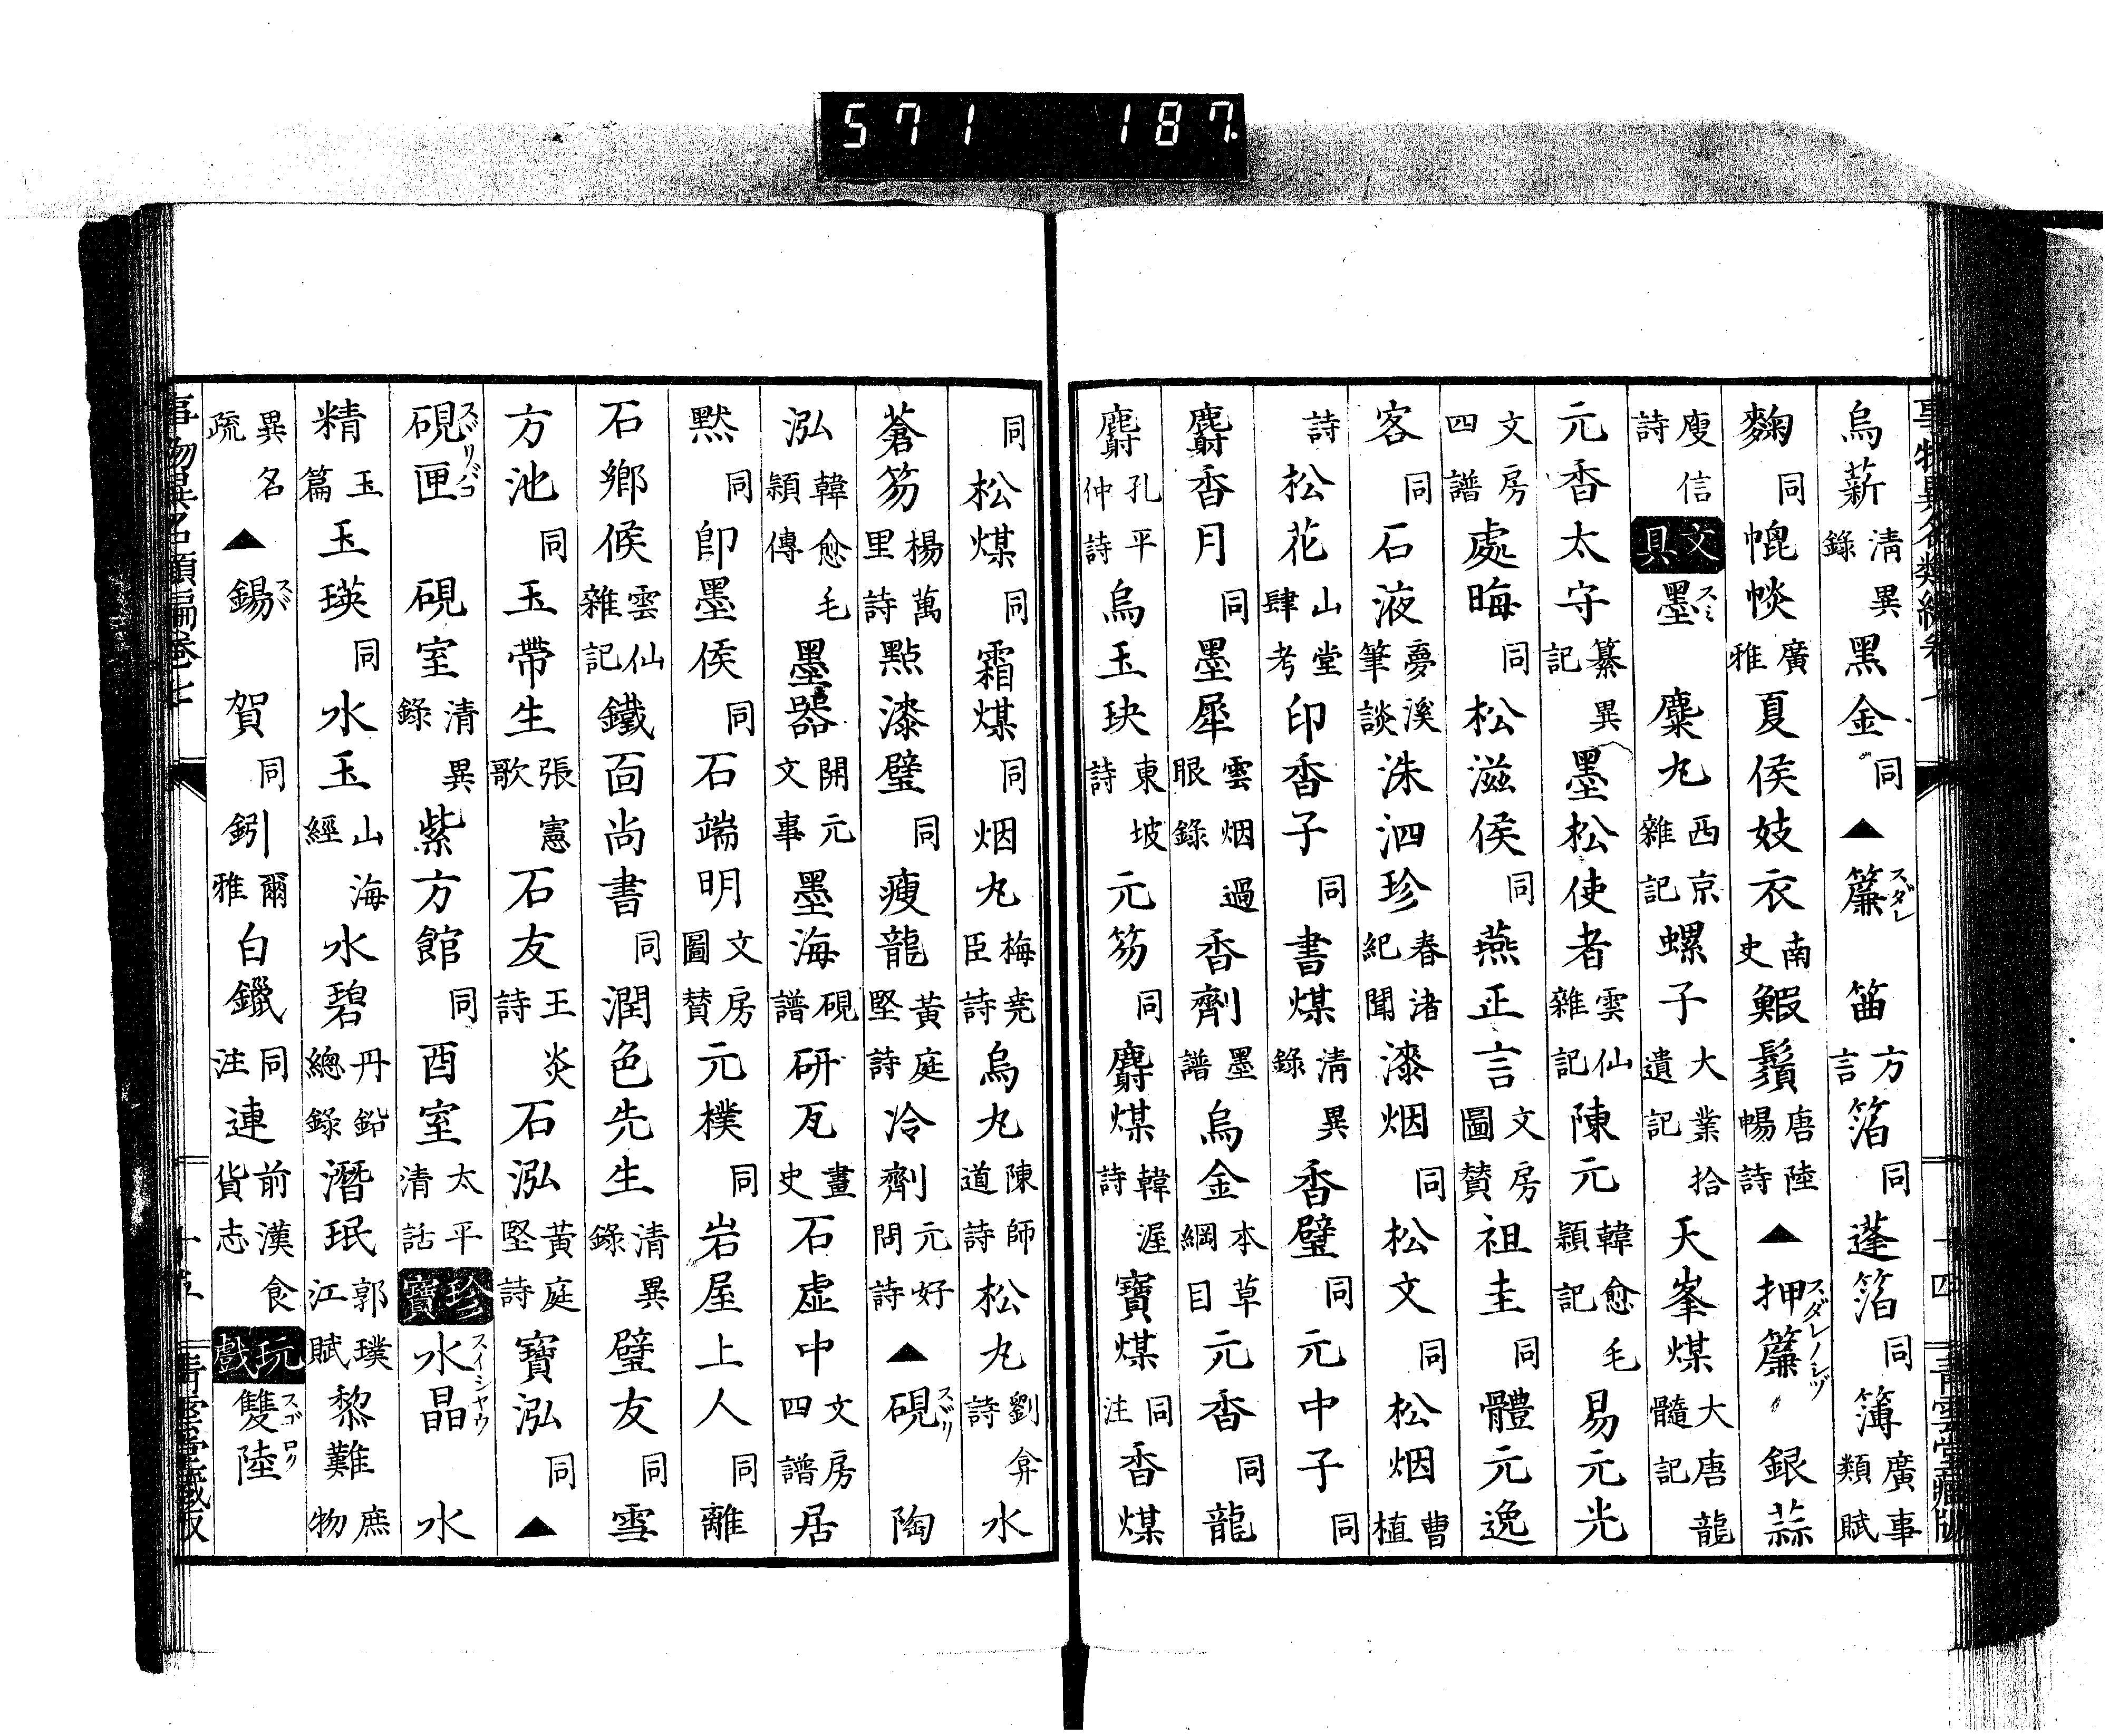 571 187.
事物異名類編卷七 十四 青雲堂藏版
烏薪清異錄黑金同▲簾スダレ笛方言箔同蓬箔同簿廣事類賦
麴同幒廣雅夏侯妓衣南史鰕鬚唐陸暢詩▲押簾スダレノシヅ銀蒜
庾信詩文具墨スミ麋丸西京雜記螺子大業拾遺記天峯煤大唐龍髓記
元香太守纂異記墨松使者雲仙雜記陳元韓愈毛穎記易元光
文房四譜處晦同松滋侯同燕正言文房圖贊祖圭同體元逸
客同石液夢溪筆談洙泗珍春渚紀聞漆烟同松文同松烟曹植
詩松花山堂肆考印香子同書煤清異錄香璧同元中子同
麝香月同墨犀雲烟過眼錄香劑墨譜烏金本草綱目元香同龍
麝孔平仲詩烏玉玦東坡詩元笏同麝煤韓渥詩寶煤同注香煤
同松煤同霜煤同烟丸梅堯臣詩烏丸陳師道詩松丸劉弇詩水
蒼笏楊萬里詩點漆璧同瘦龍黃庭堅詩冷劑元好問詩▲硯スヾリ陶
泓韓愈毛穎傳墨器開元文事墨海硯譜研瓦畫史石虛中文房四譜居
默同卽墨侯同石端明文房圖贊元樸同岩屋上人同離
石鄉侯雲仙雜記鐵面尚書同潤色先生清異錄璧友同雪
方池同玉帶生張憲歌石友王炎詩石泓黃庭堅詩寶泓同▲
硯匣スヾリバコ硯室清異錄紫方館同酉室太平清話珍寶水晶スイシヤウ水
精玉篇玉瑛同水玉山海經水碧丹鉛總錄潛珉郭璞江賦黎難庶物
異名疏▲錫スヾ賀同鈏爾雅白鑞同注連前漢食貨志玩戲雙陸スゴロク
事物異名類編卷七 十五 青雲堂藏版